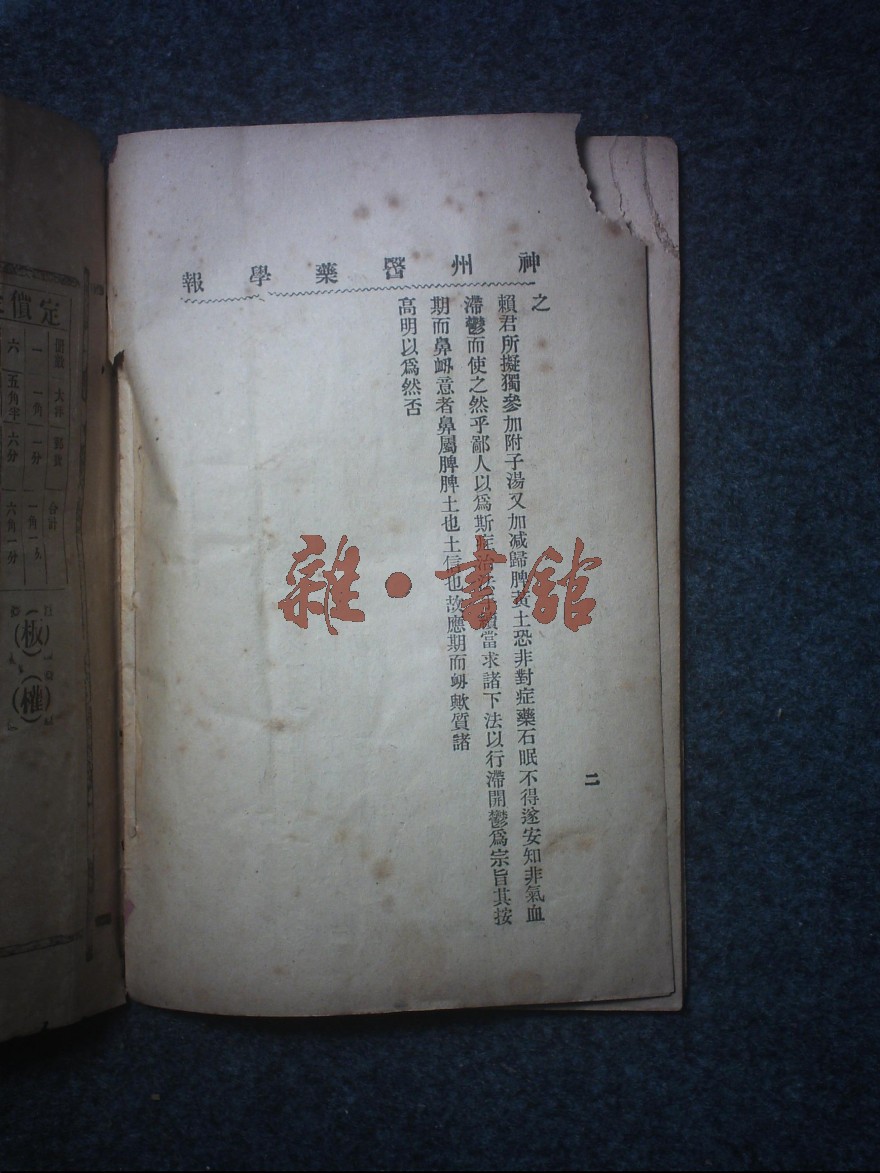 神州醫藥學報
之
賴君所擬獨參加附子湯又加減歸脾黃土恐非對症藥石眠不得遂安知非氣血
滯鬱而使之然乎鄙人以爲斯症治法當求諸下法以行滯開鬱爲宗旨其按
期而鼻衂意者鼻屬脾脾土也土信也故應期而衂歟質諸
高明以爲然否
二
雜·書館
定價
冊數 一 六
大洋 一角 五角半
郵費 一分 六分
合計 一角一 六角一分
(板)
(權)